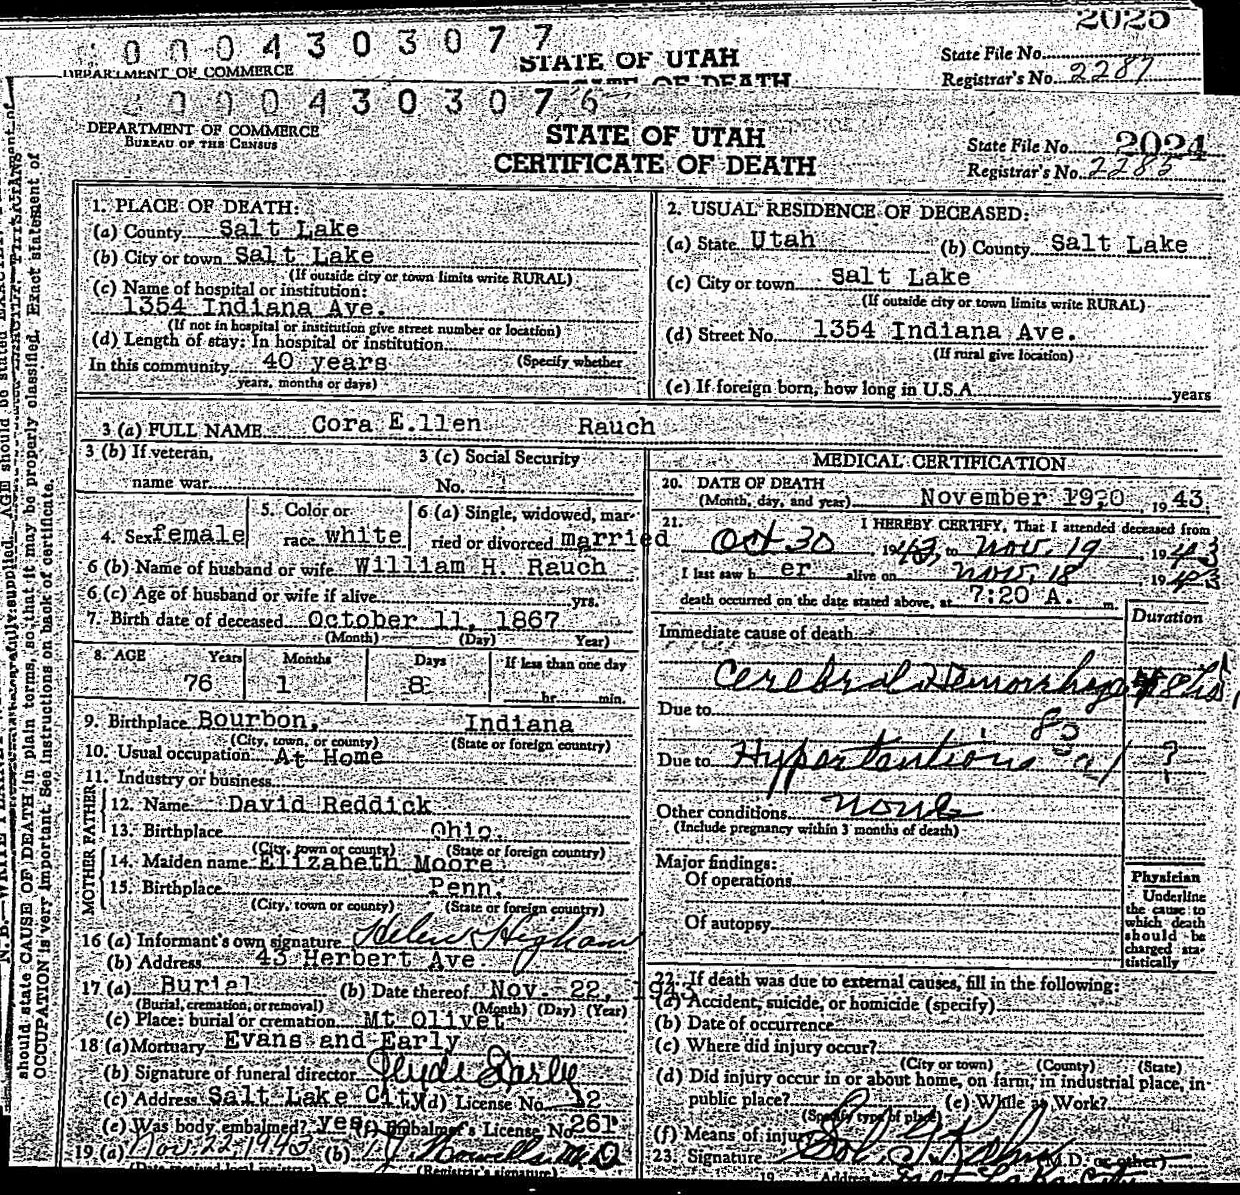 2025
0 0 0 4 3 0 3 0 7 7
STATE OF UTAH
State File No.
DEPARTMENT OF COMMERCE
OF DEATH
Registrar's No. 2287
0 0 0 4 3 0 3 0 7 6
DEPARTMENT OF COMMERCE
BUREAU OF THE CENSUS
STATE OF UTAH
CERTIFICATE OF DEATH
State File No. 2024
Registrar's No. 2285
1. PLACE OF DEATH:
(a) County Salt Lake
(b) City or town Salt Lake
(If outside city or town limits write RURAL)
(c) Name of hospital or institution:
1354 Indiana Ave.
(If not in hospital or institution give street number or location)
(d) Length of stay: In hospital or institution
In this community 40 years (Specify whether
years, months or days)
2. USUAL RESIDENCE OF DECEASED:
(a) State Utah (b) County Salt Lake
(c) City or town Salt Lake
(If outside city or town limits write RURAL)
(d) Street No. 1354 Indiana Ave.
(If rural give location)
(e) If foreign born, how long in U.S.A. years
3 (a) FULL NAME Cora E.llen Rauch
3 (b) If veteran,
name war
3 (c) Social Security
No.
4. Sex female
5. Color or
race white
6 (a) Single, widowed, mar-
ried or divorced married
6 (b) Name of husband or wife William H. Rauch
6 (c) Age of husband or wife if alive yrs.
7. Birth date of deceased October 11, 1867
(Month) (Day) Year)
8. AGE Years Months Days If less than one day
76 1 8 hr. min.
9. Birthplace Bourbon, Indiana
(City, town, or county) (State or foreign country)
10. Usual occupation At Home
11. Industry or business
FATHER
12. Name David Reddick
13. Birthplace Ohio
(City, town or county) (State or foreign country)
MOTHER
14. Maiden name Elizabeth Moore
15. Birthplace Penn.
(City, town or county) (State or foreign country)
16 (a) Informant's own signature Helen Higham
(b) Address 43 Herbert Ave.
17 (a) Burial (b) Date thereof Nov. 22, 1943
(Burial, cremation, or removal) (Month) (Day) (Year)
(c) Place: burial or cremation Mt Olivet
18 (a) Mortuary Evans and Early
(b) Signature of funeral director
(c) Address Salt Lake City (d) License No. 12
(e) Was body embalmed? yes (f) Embalmer's License No. 261
19 (a) Nov. 22, 1943 (b) M.D.
(Registrar's signature)
MEDICAL CERTIFICATION
20. DATE OF DEATH
(Month, day, and year) November 1920, 1943.
21. I HEREBY CERTIFY, That I attended deceased from
Oct 30, 1943, to Nov. 19, 1943
I last saw h er alive on Nov. 18, 1943
death occurred on the date stated above, at 7:20 A. m.
Duration
Immediate cause of death
Cerebral Hemorrhage
Due to
83
Due to Hypertentions a1 ?
Other conditions none
(Include pregnancy within 3 months of death)
Major findings:
Of operations
Of autopsy
Physician
Underline
the cause to
which death
should be
charged sta-
tistically
22. If death was due to external causes, fill in the following:
(a) Accident, suicide, or homicide (specify)
(b) Date of occurrence
(c) Where did injury occur?
(City or town) (County) (State)
(d) Did injury occur in or about home, on farm, in industrial place, in
public place? (e) While at Work?
(Specify type of place)
(f) Means of injury
23. Signature (M.D. or other)
19 Address Salt Lake City
should state CAUSE OF DEATH in plain terms, so that it may be properly classified. Exact statement of
OCCUPATION is very important. See instructions on back of certificate.